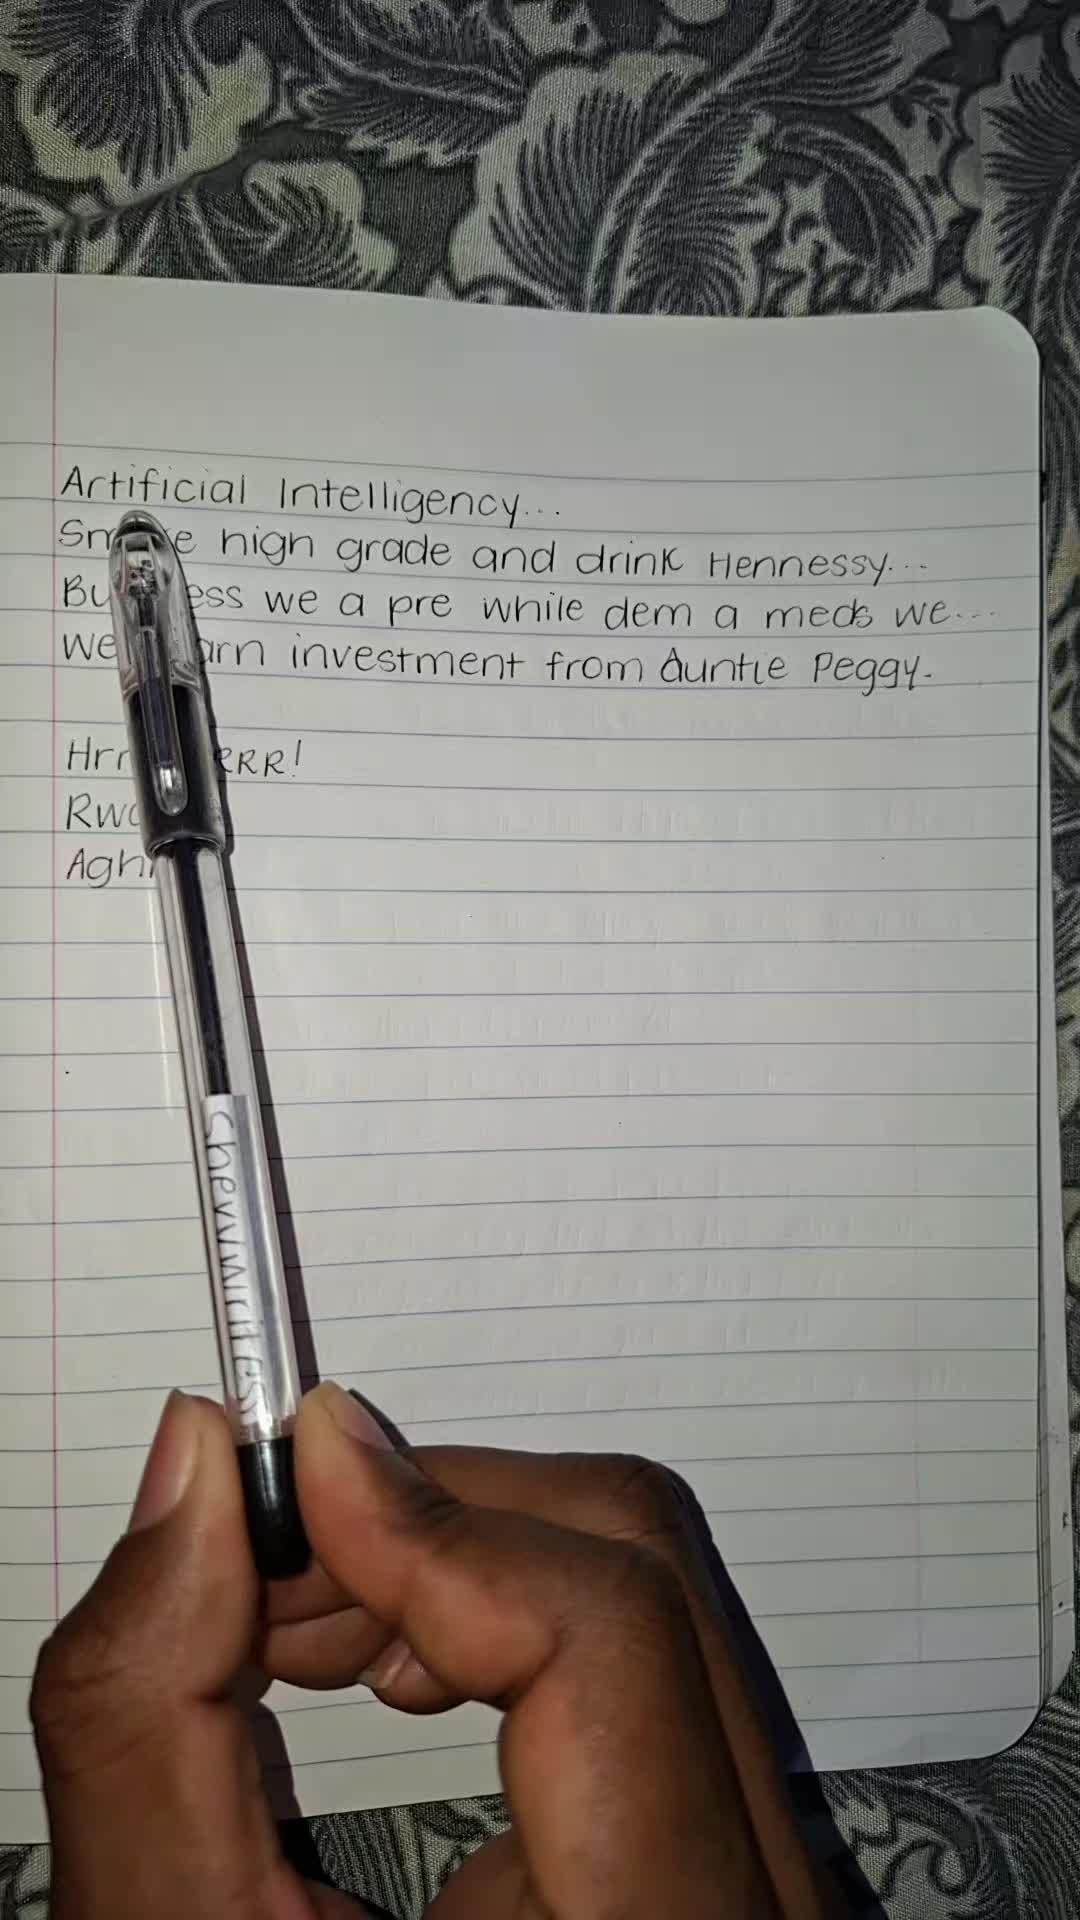 Artificial Intelligency...
high grade and drink Hennessy...
we a pre while dem a meds we...
we investment from Auntie Peggy.
Sheyvwrites